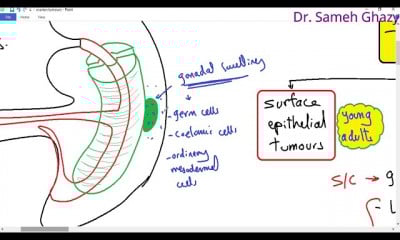 Dr. Sameh Ghazy
gonadal swelling
- germ cells
- coelomic cells
- ordinary
mesodermal
cells
surface
epithelial
tumours
young
adults
S/C → g